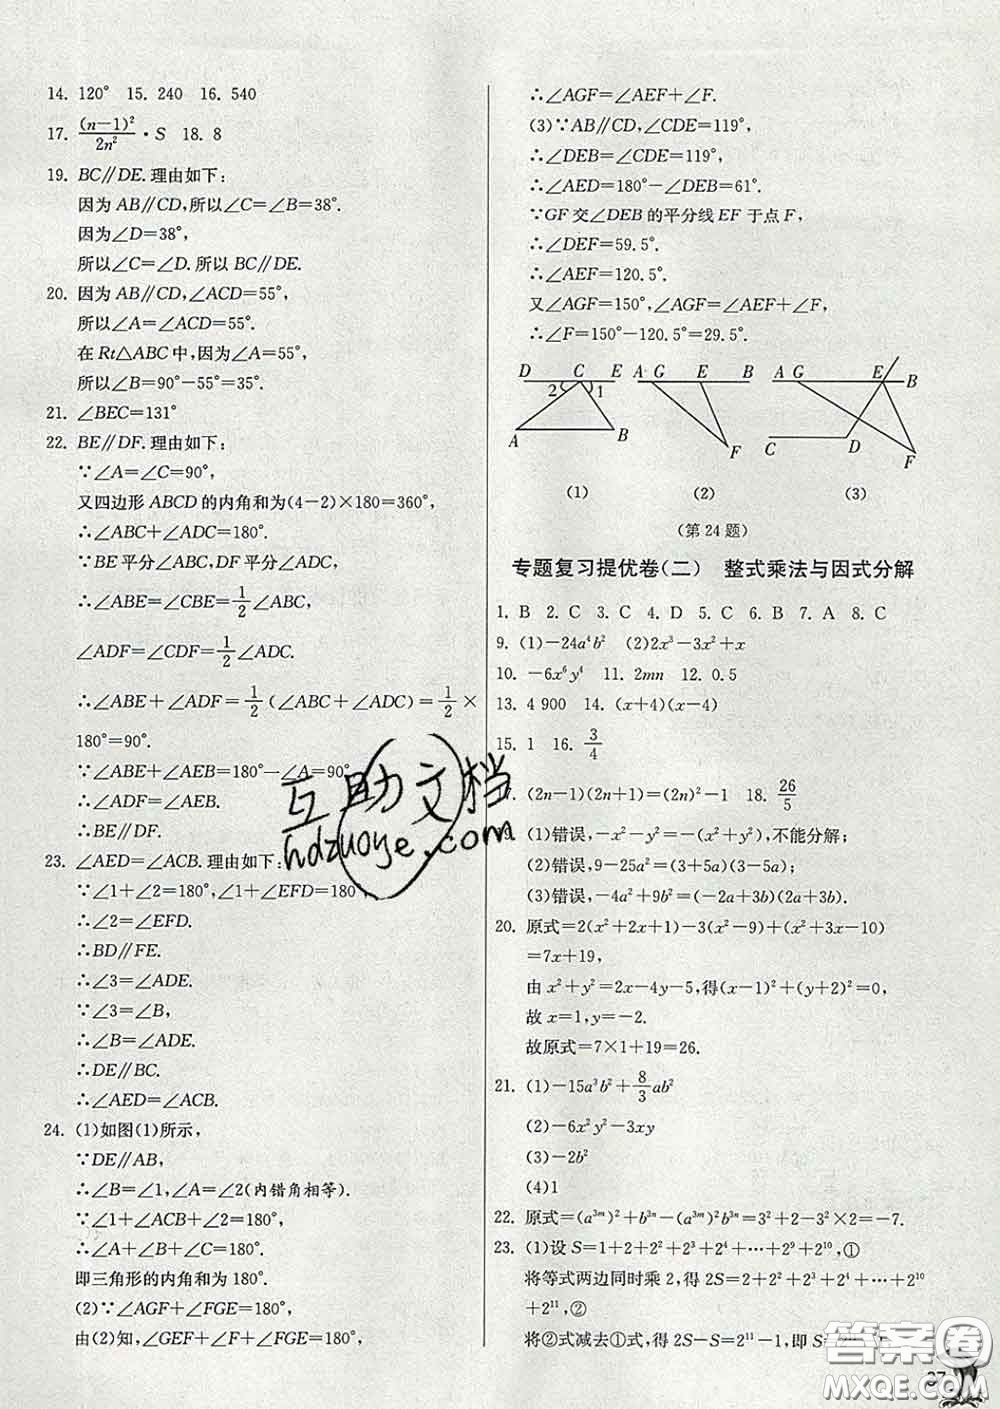 14. 120°  15. 240  16. 540
17. (n－1)²/2n² · S  18. 8
19. BC∥DE.理由如下：
因为AB∥CD,所以∠C＝∠B＝38°.
因为∠D＝38°,
所以∠C＝∠D.所以BC∥DE.
20. 因为AB∥CD,∠ACD＝55°,
所以∠A＝∠ACD＝55°.
在Rt△ABC中,因为∠A＝55°,
所以∠B＝90°－55°＝35°.
21. ∠BEC＝131°
22. BE∥DF.理由如下：
∵∠A＝∠C＝90°,
又四边形ABCD的内角和为(4－2)×180＝360°,
∴∠ABC＋∠ADC＝180°.
∵BE平分∠ABC,DF平分∠ADC,
∴∠ABE＝∠CBE＝1/2∠ABC,
∠ADF＝∠CDF＝1/2∠ADC.
∴∠ABE＋∠ADF＝1/2(∠ABC＋∠ADC)＝1/2×
180°＝90°.
∵∠ABE＋∠AEB＝180°－∠A＝90°
∴∠ADF＝∠AEB.
∴BE∥DF.
23. ∠AED＝∠ACB.理由如下：
∵∠1＋∠2＝180°,∠1＋∠EFD＝180°,
∴∠2＝∠EFD.
∴BD∥FE.
∴∠3＝∠ADE.
∵∠3＝∠B,
∴∠B＝∠ADE.
∴DE∥BC.
∴∠AED＝∠ACB.
24. (1)如图(1)所示,
∵DE∥AB,
∴∠B＝∠1,∠A＝∠2(内错角相等).
∵∠1＋∠ACB＋∠2＝180°,
∴∠A＋∠B＋∠C＝180°.
即三角形的内角和为180°.
(2)∵∠AGF＋∠FGE＝180°,
由(2)知,∠GEF＋∠F＋∠FGE＝180°,
∴∠AGF＝∠AEF＋∠F.
(3)∵AB∥CD,∠CDE＝119°,
∴∠DEB＝∠CDE＝119°,
∴∠AED＝180°－∠DEB＝61°.
∵GF交∠DEB的平分线EF于点F,
∴∠DEF＝59.5°.
∴∠AEF＝120.5°.
又∠AGF＝150°,∠AGF＝∠AEF＋∠F,
∴∠F＝150°－120.5°＝29.5°.
D C E A G E B A G E B
2 1
A B F C D F
(1) (2) (3)
(第24题)
专题复习提优卷(二)  整式乘法与因式分解
1. B  2. C  3. C  4. D  5. C  6. B  7. A  8. C
9. (1)－24a⁴b²  (2)2x³－3x²＋x
10. －6x⁶y⁴  11. 2mn  12. 0.5
13. 4 900  14. (x＋4)(x－4)
15. 1  16. 3/4
7. (2n－1)(2n＋1)＝(2n)²－1  18. 26/5
9. (1)错误,－x²－y²＝－(x²＋y²),不能分解；
(2)错误,9－25a²＝(3＋5a)(3－5a)；
(3)错误,－4a²＋9b²＝(－2a＋3b)(2a＋3b).
20. 原式＝2(x²＋2x＋1)－3(x²－9)＋(x²＋3x－10)
＝7x＋19,
由x²＋y²＝2x－4y－5,得(x－1)²＋(y＋2)²＝0,
故x＝1,y＝－2.
故原式＝7×1＋19＝26.
21. (1)－15a³b²＋8/3ab²
(2)－6x²y²－3xy
(3)－2b²
(4)1
22. 原式＝(a³ᵐ)²＋b³ⁿ－(a³ᵐ)²b³ⁿ＝3²＋2－3²×2＝－7.
23. (1)设S＝1＋2＋2²＋2³＋2⁴＋…＋2⁹＋2¹⁰,①
将等式两边同时乘2,得2S＝2＋2²＋2³＋2⁴＋…＋2¹⁰
＋2¹¹,②
将②式减去①式,得2S－S＝2¹¹－1,即S＝2¹¹
互助文档
hdzuoye.com
答案圈
MXQE.COM